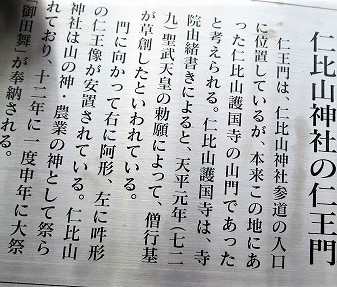 仁比山神社の仁王門
仁王門は、仁比山神社参道の入口
に位置しているが、本来この地にあ
った仁比山護国寺の山門であった
と考えられる。仁比山護国寺は、寺
院由緒書きによると、天平元年(七二
九)聖武天皇の勅願によって、僧行基
が草創したといわれている。
門に向かって右に阿形、左に吽形
の仁王像が安置されている。仁比山
神社は山の神・農業の神として祭ら
れており、十二年に一度申年に大祭
御田舞」が奉納される。